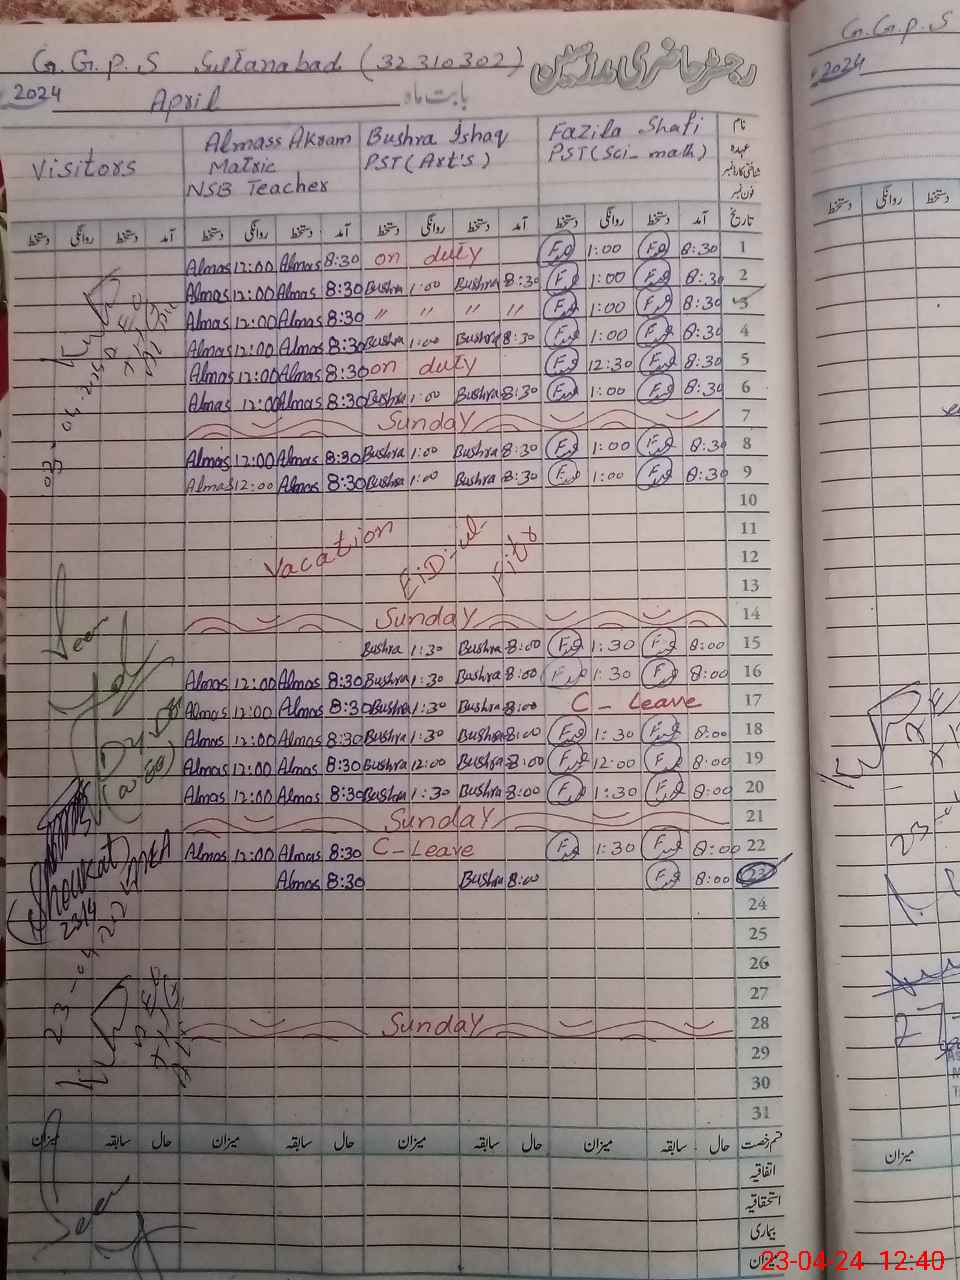 G.G.P.S Sultanabad (32310302) رجسٹر حاضری مدرسین
2024 April بابت ماہ
Visitors Almass Akram Bushra Ishaq Fazila Shafi نام
Matric PST (Art's) PST (Sci-math) عہدہ
NSB Teacher
فون نمبر
دستخط روانگی دستخط آمد دستخط روانگی دستخط آمد دستخط روانگی دستخط آمد دستخط روانگی دستخط آمد تاریخ
Almas 12:00 Almas 8:30 on duty 1:00 8:30 1
Almas 12:00 Almas 8:30 Bushra 1:00 Bushra 8:30 1:00 8:30 2
Almas 12:00 Almas 8:30 " " " " 1:00 8:30 3
Almas 12:00 Almas 8:30 Bushra 1:00 Bushra 8:30 1:00 8:30 4
Almas 12:00 Almas 8:30 on duty 12:30 8:30 5
Almas 12:00 Almas 8:30 Bushra 1:00 Bushra 8:30 1:00 8:30 6
Sunday 7
Almas 12:00 Almas 8:30 Bushra 1:00 Bushra 8:30 1:00 8:30 8
Almas 12:00 Almas 8:30 Bushra 1:00 Bushra 8:30 1:00 8:30 9
10
11
Vacation EiD-ul-Fitr 12
13
Sunday 14
Bushra 1:30 Bushra 8:00 1:30 8:00 15
Almas 12:00 Almas 8:30 Bushra 1:30 Bushra 8:00 1:30 8:00 16
Almas 12:00 Almas 8:30 Bushra 1:30 Bushra 8:00 C-Leave 17
Almas 12:00 Almas 8:30 Bushra 1:30 Bushra 8:00 1:30 8:00 18
Almas 12:00 Almas 8:30 Bushra 12:00 Bushra 8:00 12:00 8:00 19
Almas 12:00 Almas 8:30 Bushra 1:30 Bushra 8:00 1:30 8:00 20
Sunday 21
Almas 12:00 Almas 8:30 C-Leave 1:30 8:00 22
Almas 8:30 Bushra 8:00 8:00 23
24
25
26
27
Sunday 28
29
30
31
میزان سابقہ حال میزان سابقہ حال میزان سابقہ حال میزان سابقہ حال قسم رخصت
اتفاقیہ
استحقاقیہ
بیماری
میزان
Seen
Shoukat
Seen
G.G.P.S
2024
دستخط روانگی دستخط
میزان
23-04-24 12:40